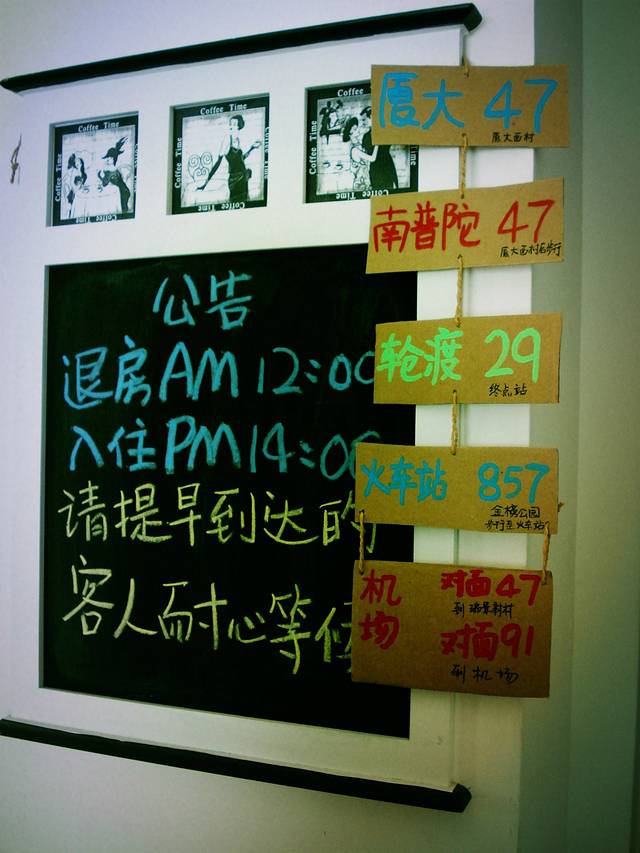 Coffee Time
Coffee Time
Coffee Time
公告
退房AM 12:00
入住PM14:00
请提早到达的
客人耐心等候
厦大 47
厦大西村
南普陀 47
厦大西村站步行
轮渡 29
终点站
火车站 857
金榜公园
步行至火车站
机场
对面47
到
对面91
到机场